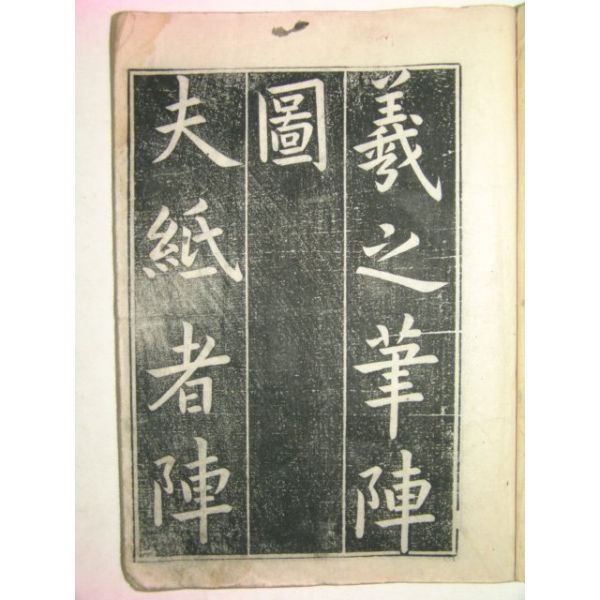 羲之筆陣
圖
夫紙者陣